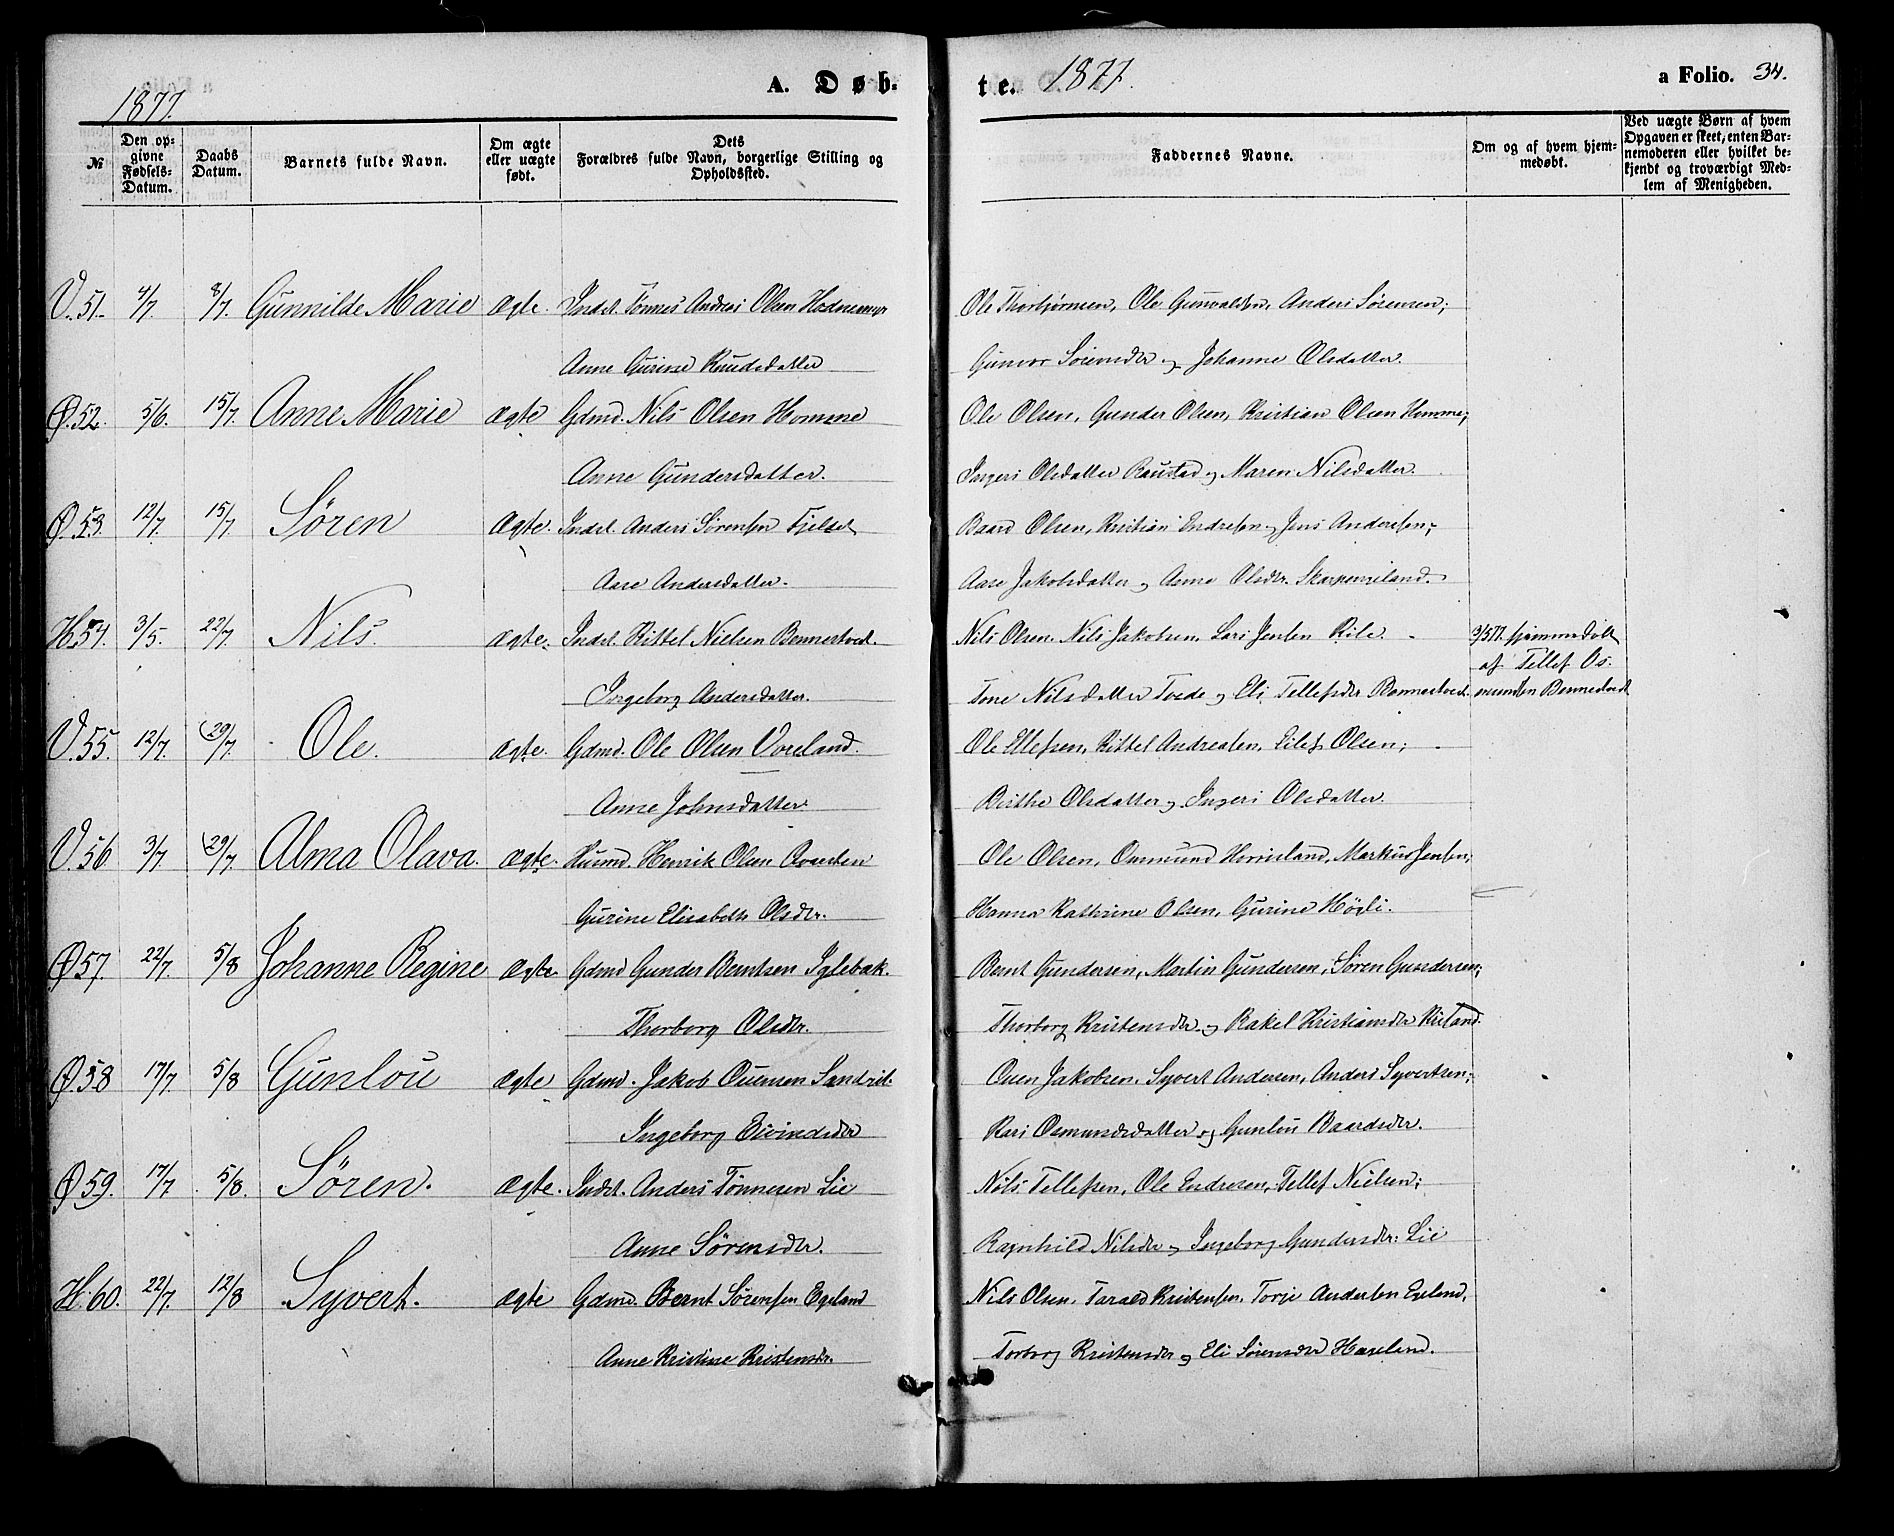 1877.
A. Døb-
te. 1877.
a Folio. 34.
№
Den opgivne Fødsels-Datum.
Daabs Datum.
Barnets fulde Navn.
Om ægte eller uægte født.
Dets Forældres fulde Navn, borgerlige Stilling og Opholdssted.
Faddernes Navne.
Om og af hvem hjemmedøbt.
Ved uægte Børn af hvem Opgaven er skeet, enten Barnemoderen eller hvilket bekjendt og troværdigt Medlem af Menigheden.
V. 51. 4/7. 8/7. Gunnilde Marie ægte. Indst. Tønnes Andreas Olsen Hodnemyr Ole Thorbjørnsen, Ole Gunvaldsen, Anders Sørensen;
Anne Gurine Knudsdatter Gunvor Sørensdtr og Johanne Olsdatter.
Ø. 52. 5/6. 15/7. Anne Marie ægte Gdmd. Nils Olsen Homme Ole Olsen, Gunder Olsen, Kristian Olsen Homme;
Anne Gundersdatter. Ingeri Olsdatter Raustad og Maren Nilsdatter.
Ø. 53. 12/7. 15/7 Søren ægte. Indst. Anders Sørensen Fjelset Baard Olsen, Kristian Endresen og Jens Andersen;
Aase Andersdatter. Aase Jakobsdatter og Anne Olsdtr.
H. 54. 3/5. 22/7 Nils. ægte. Indst. Kittel Nielsen Bennestvedt. Nils Olsen, Nils Jakobsen, Lars Jensen Kile 3/5 77. hjemmedøbt
af Tellef Os-
Ingeborg Andersdatter. Tone Nilsdatter Tvede og Eli Tellefsdtr Bennestvedt. mundsen Bennestvedt
V. 55. 12/7. 29/7. Ole. ægte. Gdmd. Ole Olsen Voreland. Ole Ellefsen, Kittel Andreasen, Eilef Olsen;
Anne Johnsdatter. Birthe Olsdatter og Ingeri Olsdatter.
V. 56 3/7 29/7. Alma Olava. ægte. Husmd. Henrik Olsen Ole Olsen, Osmund Markus Jensen;
Gurine Elisabeth Olsdtr. Hanna Kathrine Olsen, Gurine Høgli.
Ø 57. 22/7. 5/8 Johanne Regine ægte Gdmd Gunder Berntsen Iglebæk. Bernt Gundersen, Martin Gundersen, Søren Gundersen;
Thorborg Olsdtr. Thorborg Kristensdtr og Rakel Kristiansdtr Kiland.
Ø 58 17/7 5/8 Gunlou ægte Gdmd. Jakob Ouensen Sandrib. Ouen Jakobsen, Syvert Andersen, Anders Syvertsen;
Ingeborg Eivindsdtr Kari Osmundsdatter og Gunlou Baardsdtr.
Ø 59. 17/7 5/8. Søren. ægte. Indst. Anders Tønnesen Lie Nils Tellefsen, Ole Endresen, Tellef Nielsen;
Anne Sørensdtr. Ragnhild Nilsdtr og Ingeborg Gundersdtr. Lie
H. 60. 22/7. 12/8 Syvert. ægte Gdmd. Bernt Sørensen Egeland Nils Olsen, Tarald Kristensen, Torje Andersen Egeland,
Anne Kristine Kristensdtr. Torborg Kristensdtr og Eli Sørensdtr Haseland.